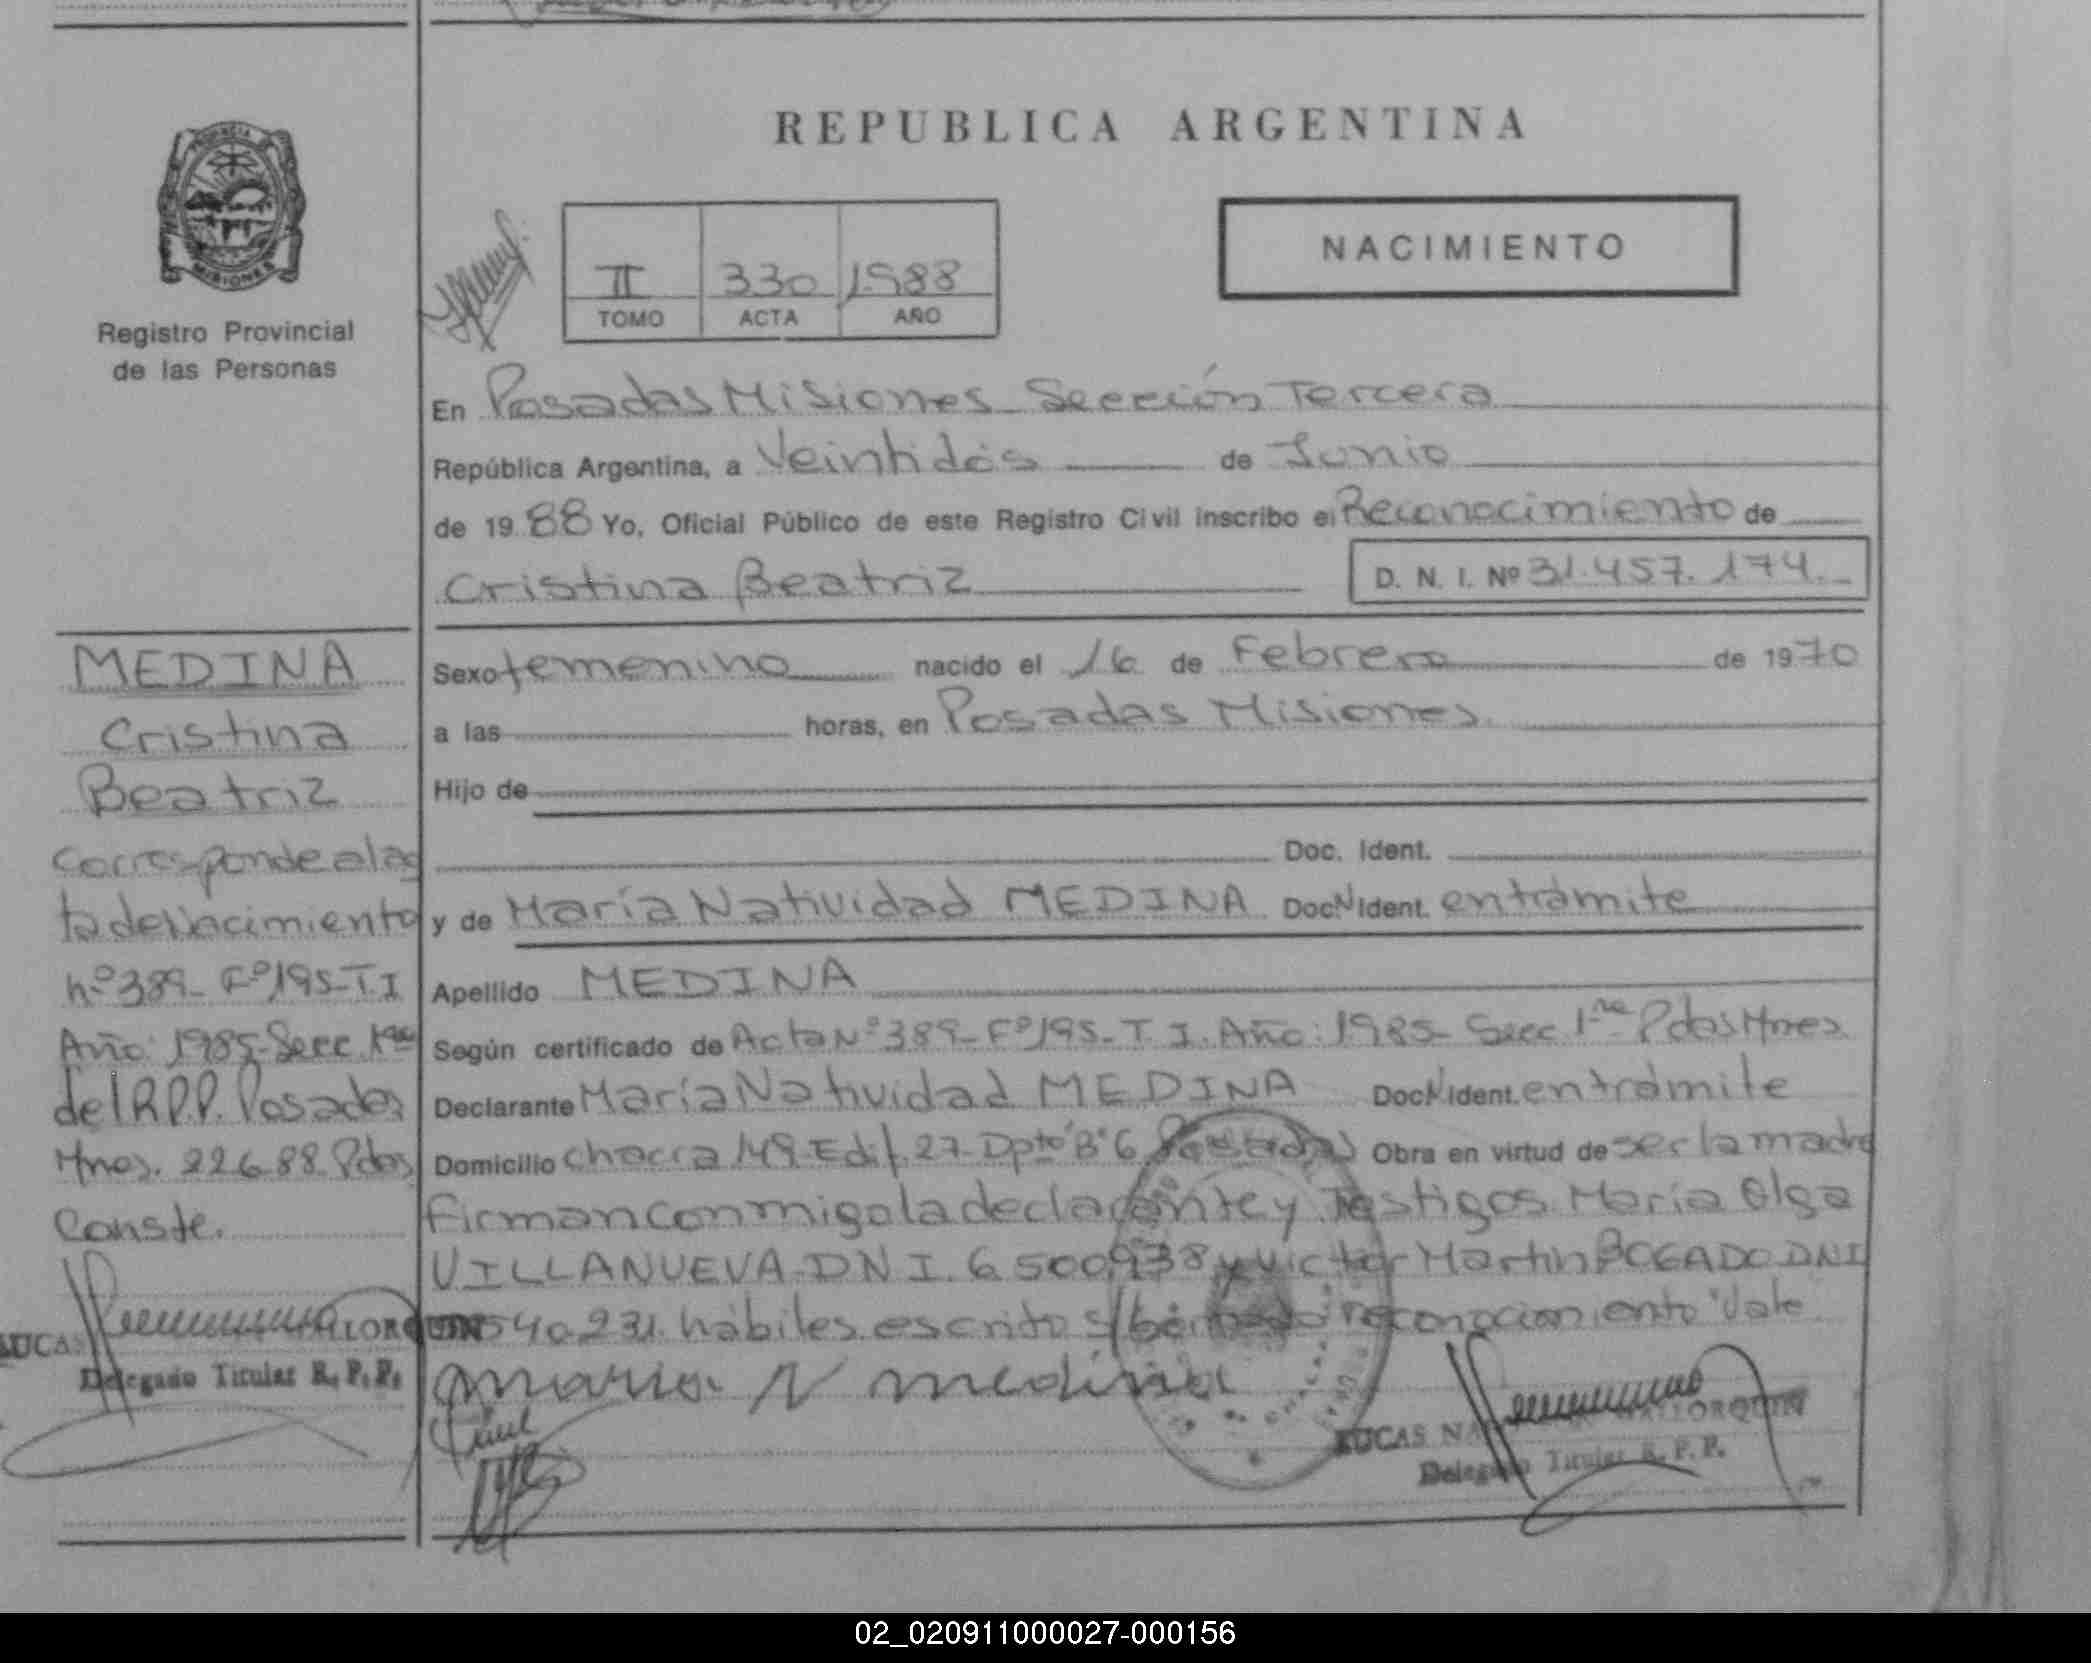 REPUBLICA ARGENTINA
NACIMIENTO
II 330 1988
TOMO ACTA AÑO
PROVINCIA
MISIONES
Registro Provincial
de las Personas
En Posadas Misiones Sección Tercera
República Argentina, a Veintidós de Junio
de 1988 Yo, Oficial Público de este Registro Civil inscribo el Reconocimiento de
Cristina Beatriz D. N. I. Nº 31.457.174.
Sexo femenino nacido el 16 de Febrero de 1970
a las horas, en Posadas Misiones
Hijo de
Doc. Ident.
y de María Natividad MEDINA Doc.N Ident. entrámite
Apellido MEDINA
Según certificado de Acta Nº 389-Fº195-T.I. Año: 1985- Secc 1ra Pdas Mnes.
Declarante María Natividad MEDINA Doc.N Ident. entrámite
Domicilio chacra 149 Edif. 27-Dpto "B" 6 Posadas Obra en virtud de ser la madre
firman conmigo la declarante y Testigos María Olga
VILLANUEVA DNI. 6.500.938 y Victor Martin BOGADO DNI
540.231. hábiles. escrito s/ reconocimiento "Vale
Maria N Medina
LUCAS MALLORQUIN
Delegado Titular R. P. P.
MEDINA
Cristina
Beatriz
Corresponde al ac
ta de Nacimiento
nº 389- Fº195-T.I
Año: 1985-Secc 1ra
del R.P.P. Posadas
Mnes. 22.6.88. Pdas
Conste.
LUCAS MALLORQUIN
Delegado Titular R. P. P.
02_020911000027-000156